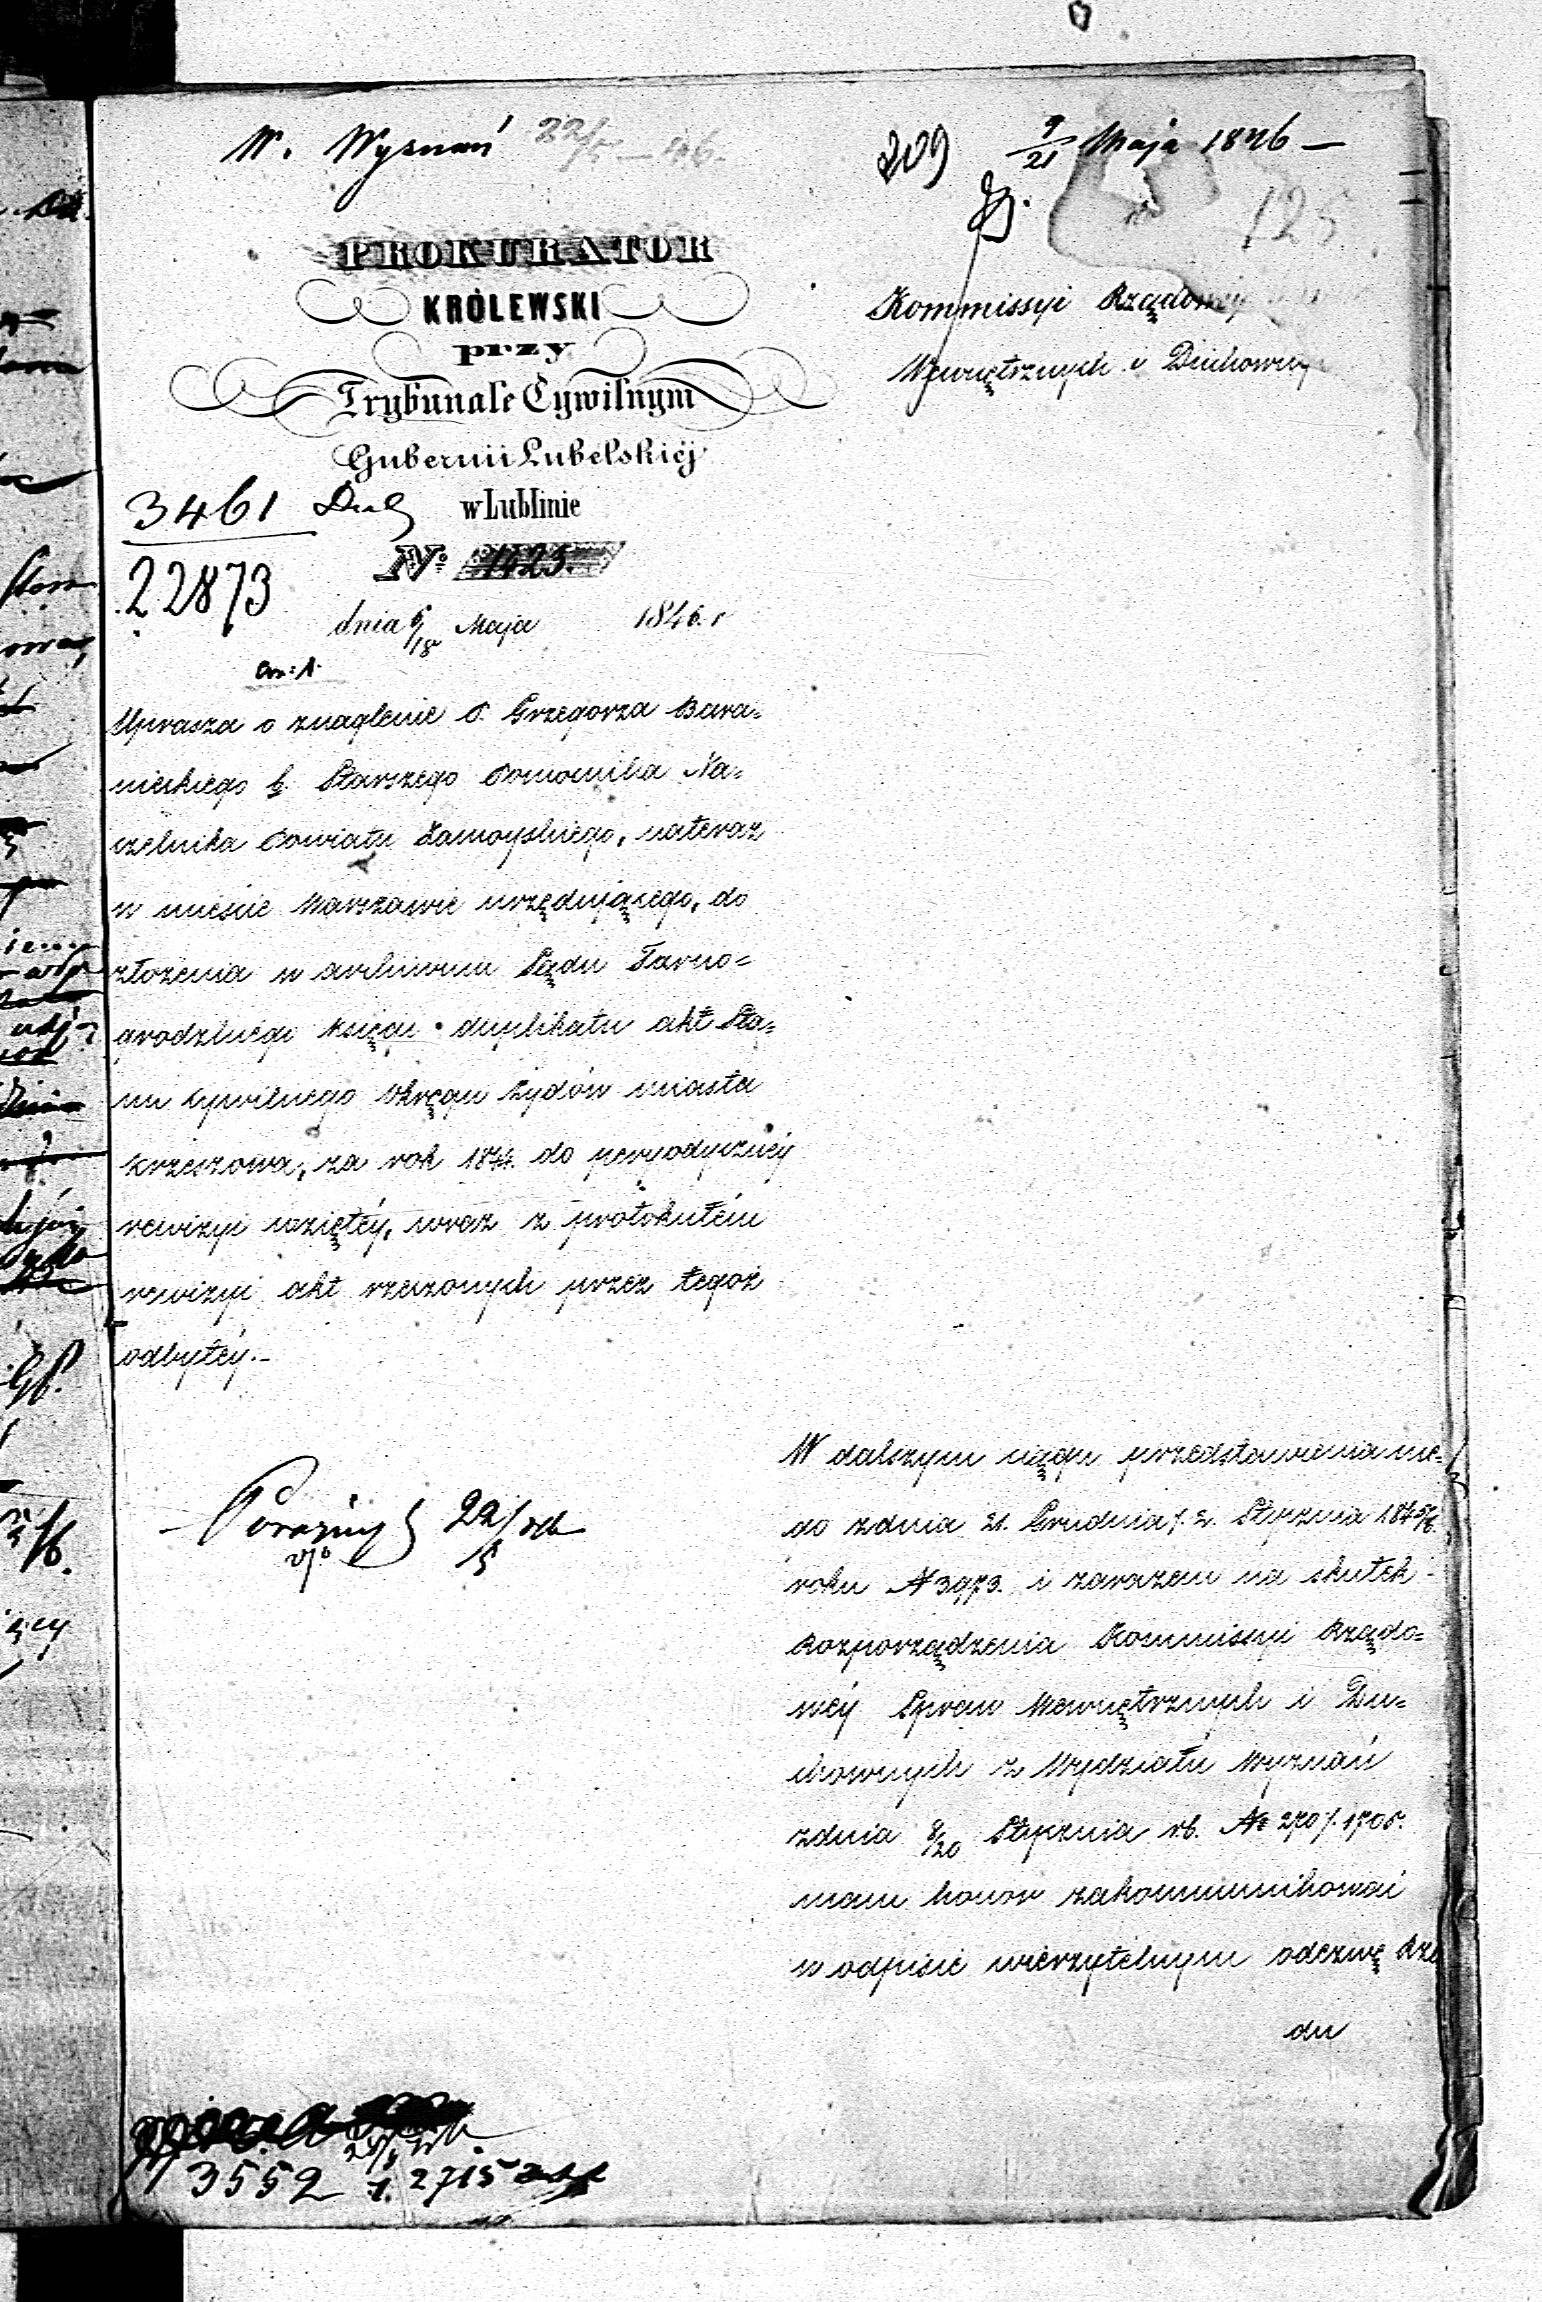 W. Wyznań 22/5 – 46.
209 9/21 Maja 1846 –
125
PROKURATOR
KRÓLEWSKI
przy
Trybunale Cywilnym
Gubernii Lubelskiéj
w Lublinie
3461
22873
№ 1423.
dnia 6/18 Maja 1846. r
Kommissyi Rządowey
Wewnętrznych i Duchownych
Uprasza o znaglenie P. Grzegorza Bara=
nieckiego b. Starszego Pomocnika Na=
czelnika Powiatu Zamoyskiego, nateraz
w mieście Warszawie urzędującego, do
złożenia w archiwum Sądu Tarno=
grodzkiego księgi duplikatu akt Sta=
nu cywilnego Okręgu Żydów miasta
Krzeszowa, za rok 1844. do peryodycznéy
rewizyi wziętéy, wraz z protokułém
rewizyi akt rzeczonych przez tegoż
odbytéy.–
W dalszym ciągu przedstawienia me=
do zdnia 21. Grudnia / 2. Stycznia 1845/6.
roku № 3973. i zarazem na skutek
Rozporządzenia Kommissyi Rządo=
wéy Spraw Wewnętrznych i Du=
chownych z Wydziału Wyznań
zdnia 8/20 Stycznia r.b. № 270/1705.
mam honor zakommunikować
w odpisie wierzytelnym odezwę Rzą
du
22/5
3552
2715